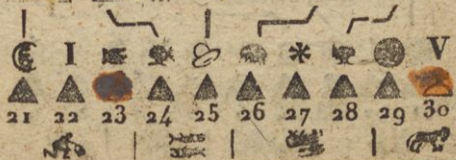 I V
21 22 23 24 25 26 27 28 29 30